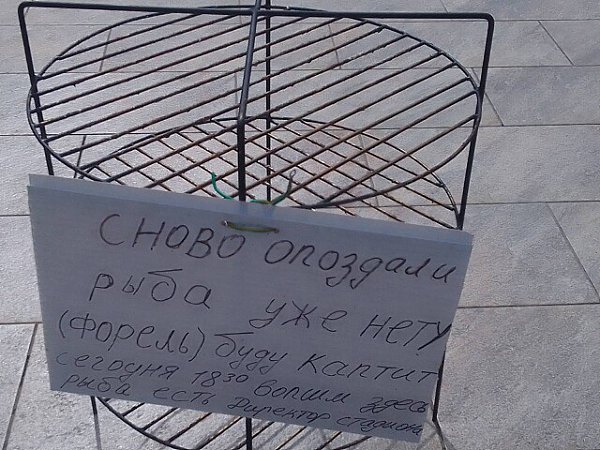 СНОВО ОПОЗДАЛИ
рыба уже НЕТУ
(ФОРЕЛЬ) буду Каптит
сегодня 18³⁰ вопшм здесь
рыба есть Директор стадиона